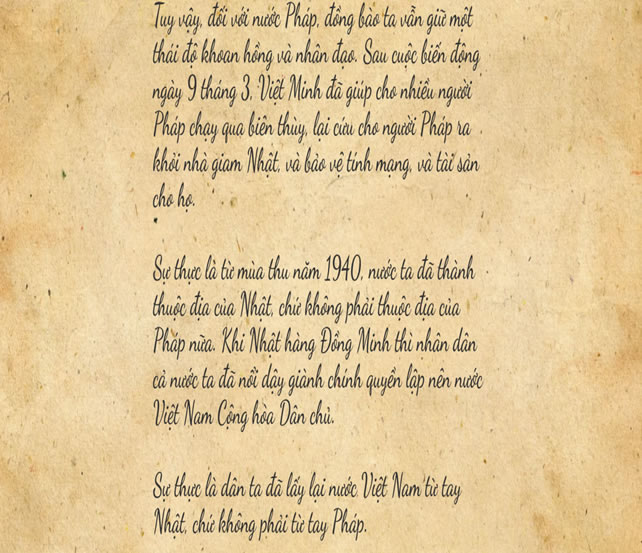 Tuy vậy, đối với nước Pháp, đồng bào ta vẫn giữ một
thái độ khoan hồng và nhân đạo. Sau cuộc biến động
ngày 9 tháng 3, Việt Minh đã giúp cho nhiều người
Pháp chạy qua biên thùy, lại cứu cho người Pháp ra
khỏi nhà giam Nhật, và bảo vệ tính mạng, và tài sản
cho họ.
Sự thực là từ mùa thu năm 1940, nước ta đã thành
thuộc địa của Nhật, chứ không phải thuộc địa của
Pháp nữa. Khi Nhật hàng Đồng Minh thì nhân dân
cả nước ta đã nổi dậy giành chính quyền lập nên nước
Việt Nam Cộng hòa Dân chủ.
Sự thực là dân ta đã lấy lại nước Việt Nam từ tay
Nhật, chứ không phải từ tay Pháp.